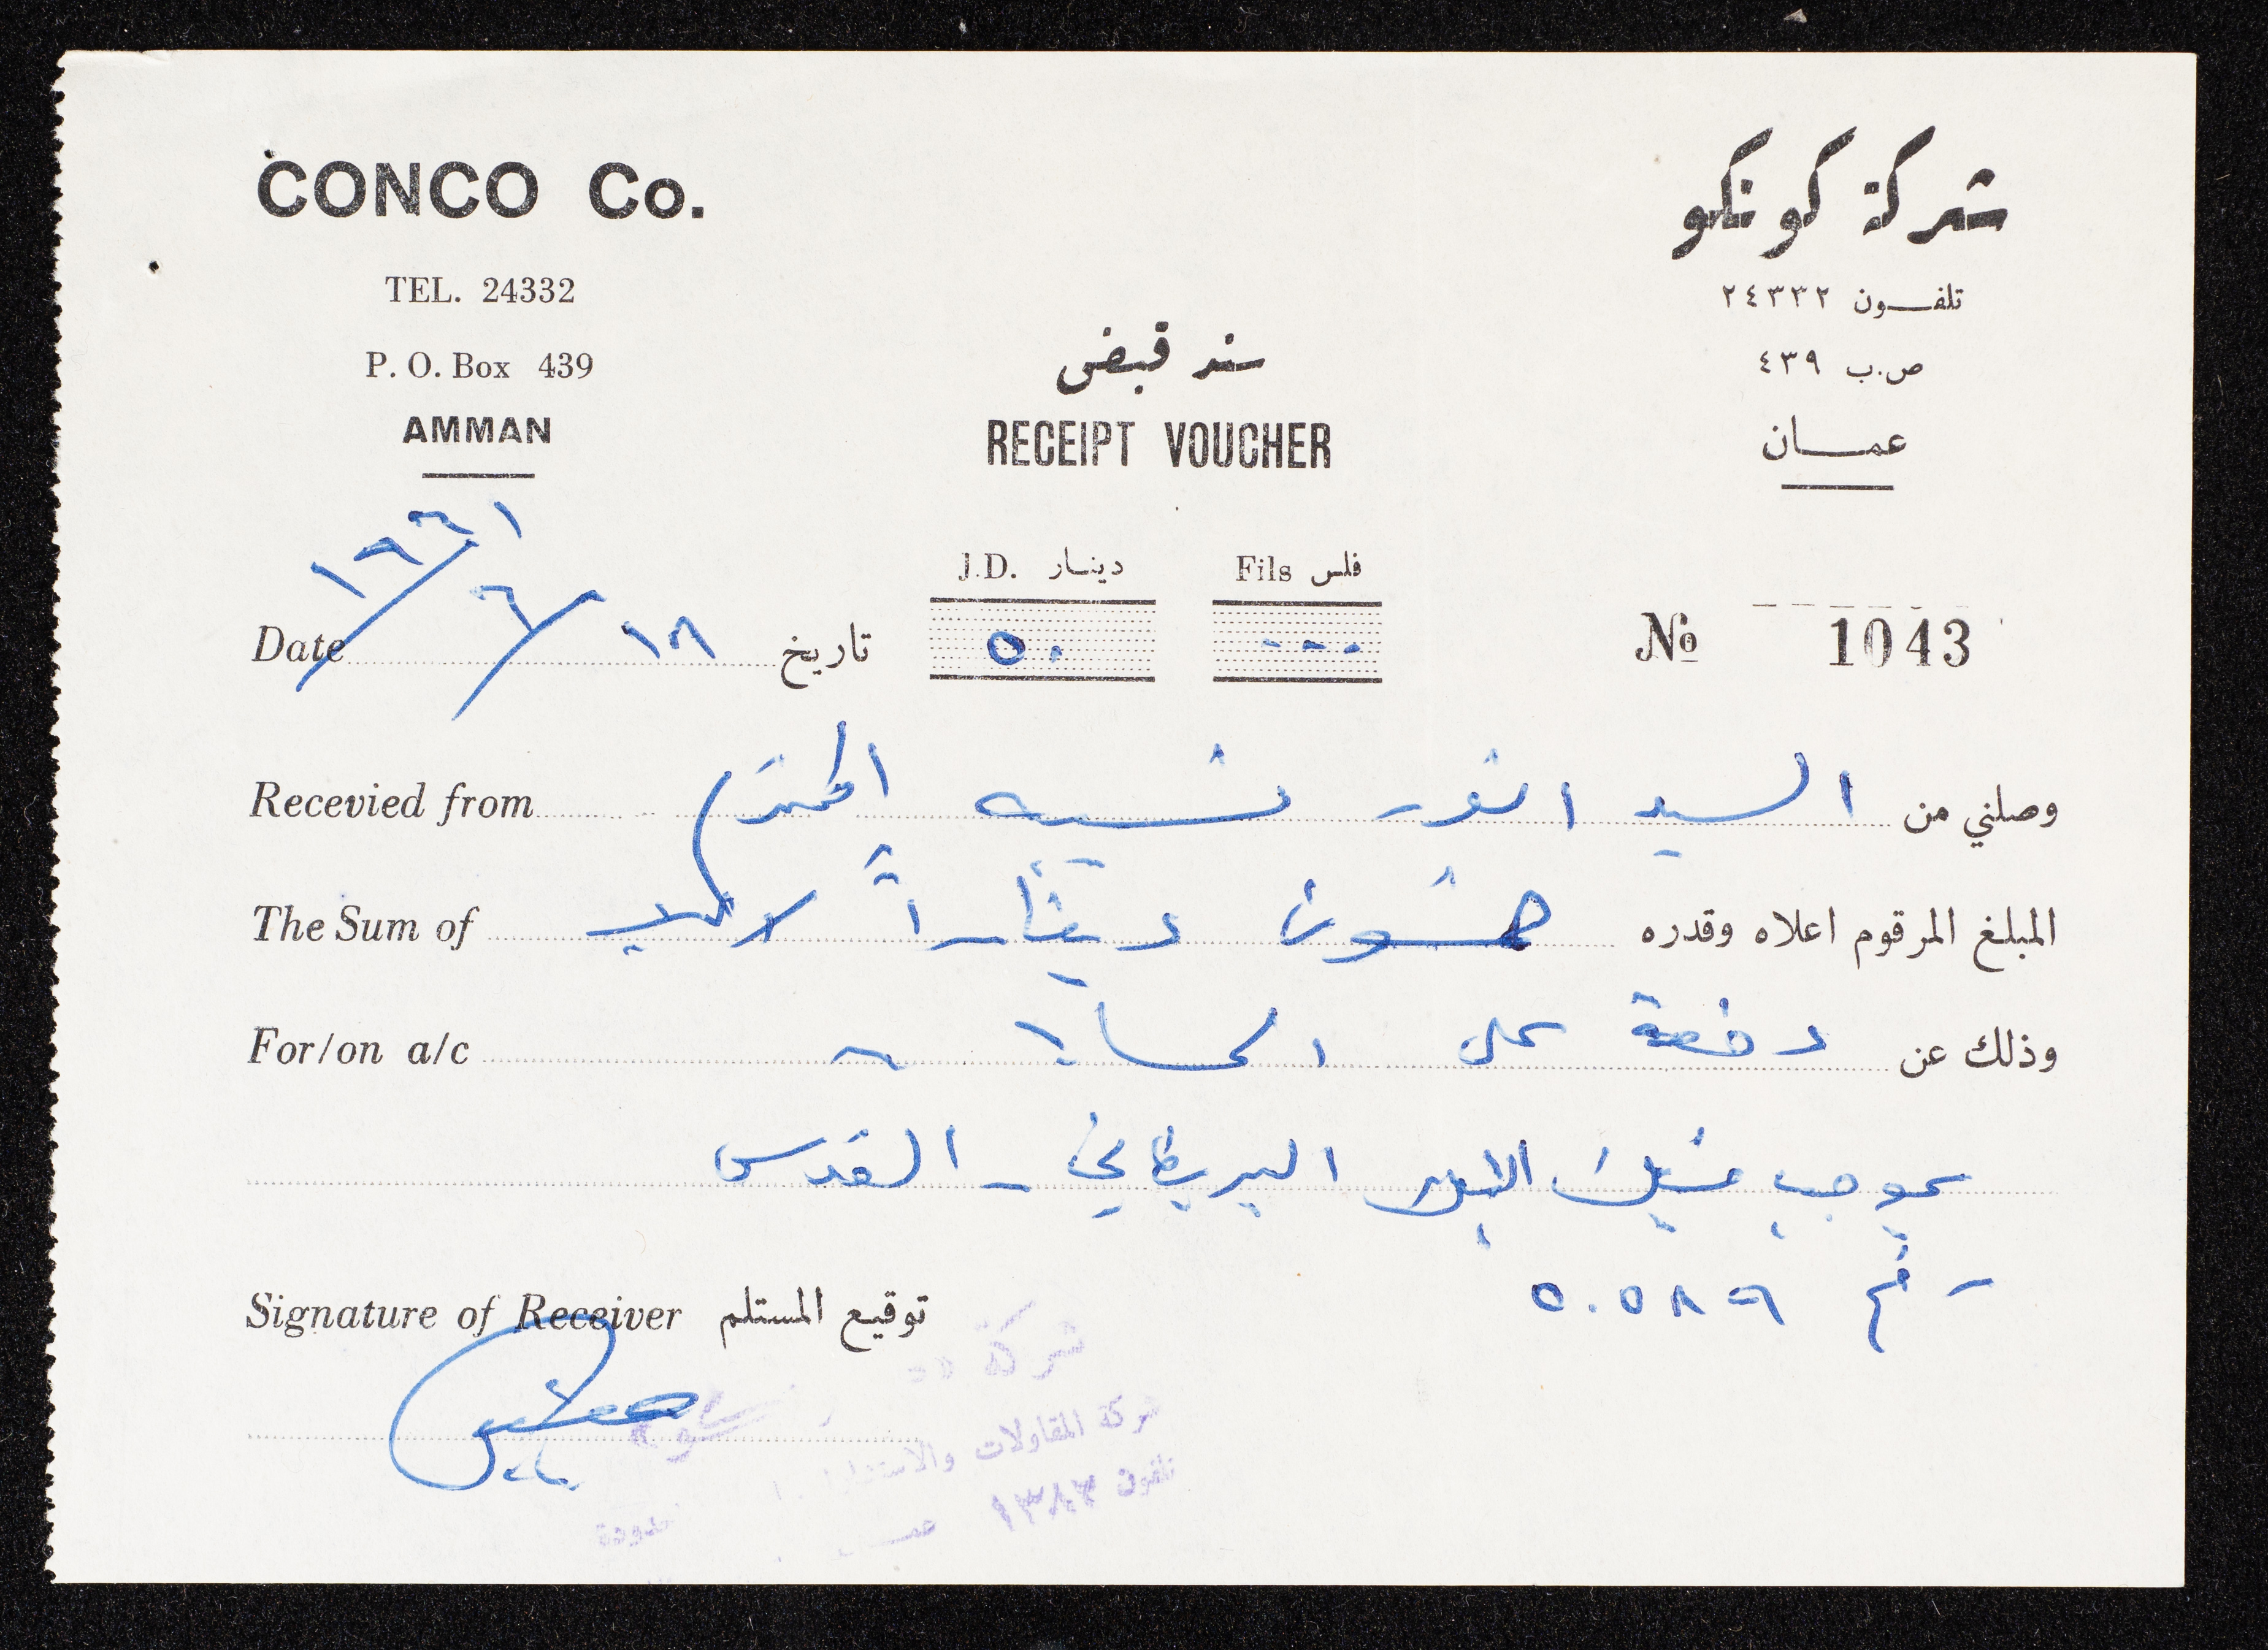 CONCO Co.
شركة كونكو
TEL. 24332
تلفـــون ٢٤٣٣٢
P. O. Box 439
ص.ب ٤٣٩
AMMAN
عمـــان
سند قبض
RECEIPT VOUCHER
J.D. دينــار
Fils فلس
Date ١٨/٦/١٩٦١ تاريخ
٥٠
٠٠٠
No 1043
Recevied from السيد انور نسيبه المحترم وصلني من
The Sum of خمسون ديناراً لا غير المبلغ المرقوم اعلاه وقدره
For/on a/c دفعة على الحساب وذلك عن
بموجب شيك البنك البريطاني - القدس
رقم ٥٠٥٨٩
Signature of Receiver توقيع المستلم
شركة
شركة المقاولات
تلفون ١٣٨٣